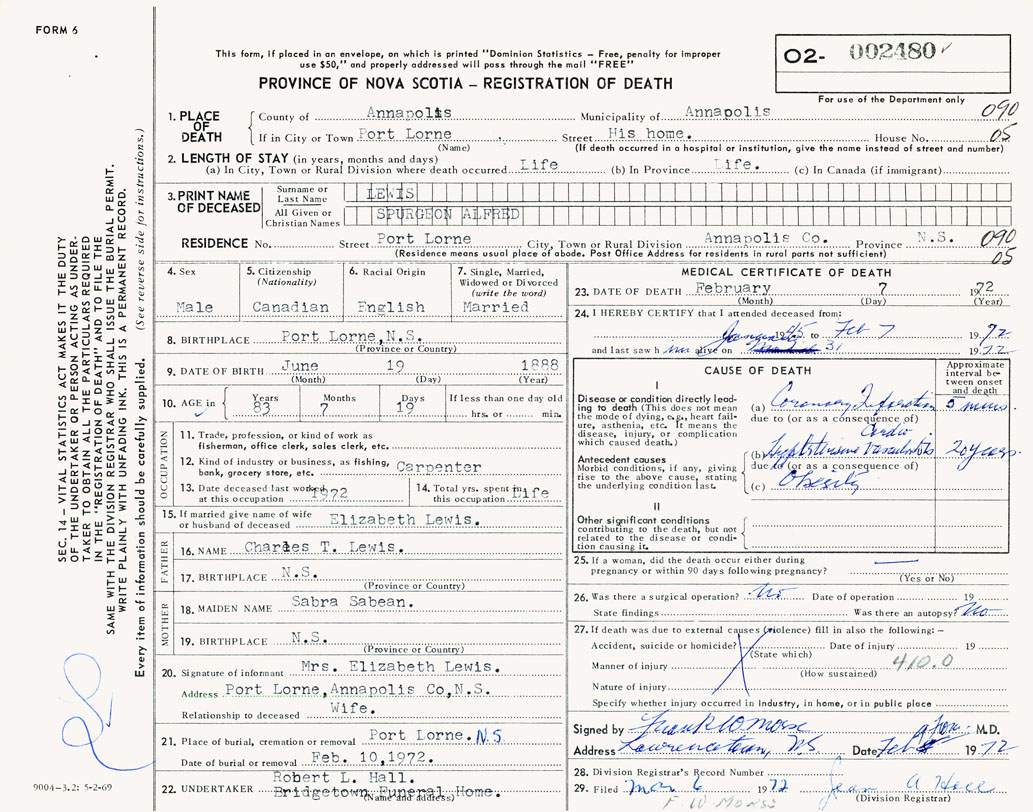 FORM 6
This form, if placed in an envelope, on which is printed "Dominion Statistics – Free, penalty for improper
use $50," and properly addressed will pass through the mail "FREE"
PROVINCE OF NOVA SCOTIA – REGISTRATION OF DEATH
O2- 002480
For use of the Department only
1. PLACE OF DEATH
County of Annapolis Municipality of Annapolis 090
If in City or Town Port Lorne Street His home. House No. 05
(Name) (If death occurred in a hospital or institution, give the name instead of street and number)
2. LENGTH OF STAY (in years, months and days)
(a) In City, Town or Rural Division where death occurred Life (b) In Province Life. (c) In Canada (if immigrant)
3. PRINT NAME OF DECEASED
Surname or Last Name LEWIS
All Given or Christian Names SPURGEON ALFRED
RESIDENCE No. Street Port Lorne City, Town or Rural Division Annapolis Co. Province N.S. 090
(Residence means usual place of abode. Post Office Address for residents in rural parts not sufficient) 05
4. Sex
Male
5. Citizenship (Nationality)
Canadian
6. Racial Origin
English
7. Single, Married, Widowed or Divorced (write the word)
Married
8. BIRTHPLACE Port Lorne,N.S.
(Province or Country)
9. DATE OF BIRTH June 19 1888
(Month) (Day) (Year)
10. AGE in Years 83 Months 7 Days 19 If less than one day old
hrs. or min.
OCCUPATION
11. Trade, profession, or kind of work as
fisherman, office clerk, sales clerk, etc.
12. Kind of industry or business, as fishing,
bank, grocery store, etc. Carpenter
13. Date deceased last worked
at this occupation 1972
14. Total yrs. spent in
this occupation Life
15. If married give name of wife
or husband of deceased Elizabeth Lewis.
FATHER
16. NAME Charles T. Lewis.
17. BIRTHPLACE N.S.
(Province or Country)
MOTHER
18. MAIDEN NAME Sabra Sabean.
19. BIRTHPLACE N.S.
(Province or Country)
20. Signature of informant Mrs. Elizabeth Lewis.
Address Port Lorne,Annapolis Co,N.S.
Relationship to deceased Wife.
21. Place of burial, cremation or removal Port Lorne. N.S
Date of burial or removal Feb. 10,1972.
Robert L. Hall.
22. UNDERTAKER Bridgetown Funeral Home.
(Name and address)
MEDICAL CERTIFICATE OF DEATH
23. DATE OF DEATH February 7 1972
(Month) (Day) (Year)
24. I HEREBY CERTIFY that I attended deceased from:
1945 to Feb 7 1972
and last saw him alive on 31 1972
CAUSE OF DEATH
Approximate interval between onset and death
I
Disease or condition directly lead-
ing to death (This does not mean
the mode of dying, e.g., heart fail-
ure, asthenia, etc. It means the
disease, injury, or complication
which caused death.)
(a) Coronary Infarction 5 mins.
due to (or as a consequence of)
Antecedent causes
Morbid conditions, if any, giving
rise to the above cause, stating
the underlying condition last.
Cardio
(b) Hypertensive Vascular 20 years
due to (or as a consequence of)
(c) Obesity
II
Other significant conditions
contributing to the death, but not
related to the disease or condi-
tion causing it.
25. If a woman, did the death occur either during
pregnancy or within 90 days following pregnancy?
(Yes or No)
26. Was there a surgical operation? No Date of operation 19
State findings Was there an autopsy? No
27. If death was due to external causes (violence) fill in also the following: –
Accident, suicide or homicide? Date of injury 19
(State which)
Manner of injury 410.0
(How sustained)
Nature of injury
Specify whether injury occurred in Industry, in home, or in public place
Signed by Frank W Morse M.D.
Address Lawrencetown, NS Date Feb 8 1972
28. Division Registrar's Record Number
29. Filed Mar 6 1972 Jean A Hall
(Division Registrar)
F. W MORSE
SEC. 14 – VITAL STATISTICS ACT MAKES IT THE DUTY
OF THE UNDERTAKER OR PERSON ACTING AS UNDER-
TAKER TO OBTAIN ALL THE PARTICULARS REQUIRED
IN THE "REGISTRATION OF DEATH" AND TO FILE THE
SAME WITH THE DIVISION REGISTRAR WHO SHALL ISSUE THE BURIAL PERMIT.
WRITE PLAINLY WITH UNFADING INK. THIS IS A PERMANENT RECORD.
Every item of information should be carefully supplied. (See reverse side for instructions.)
9004-3.2: 5-2-69